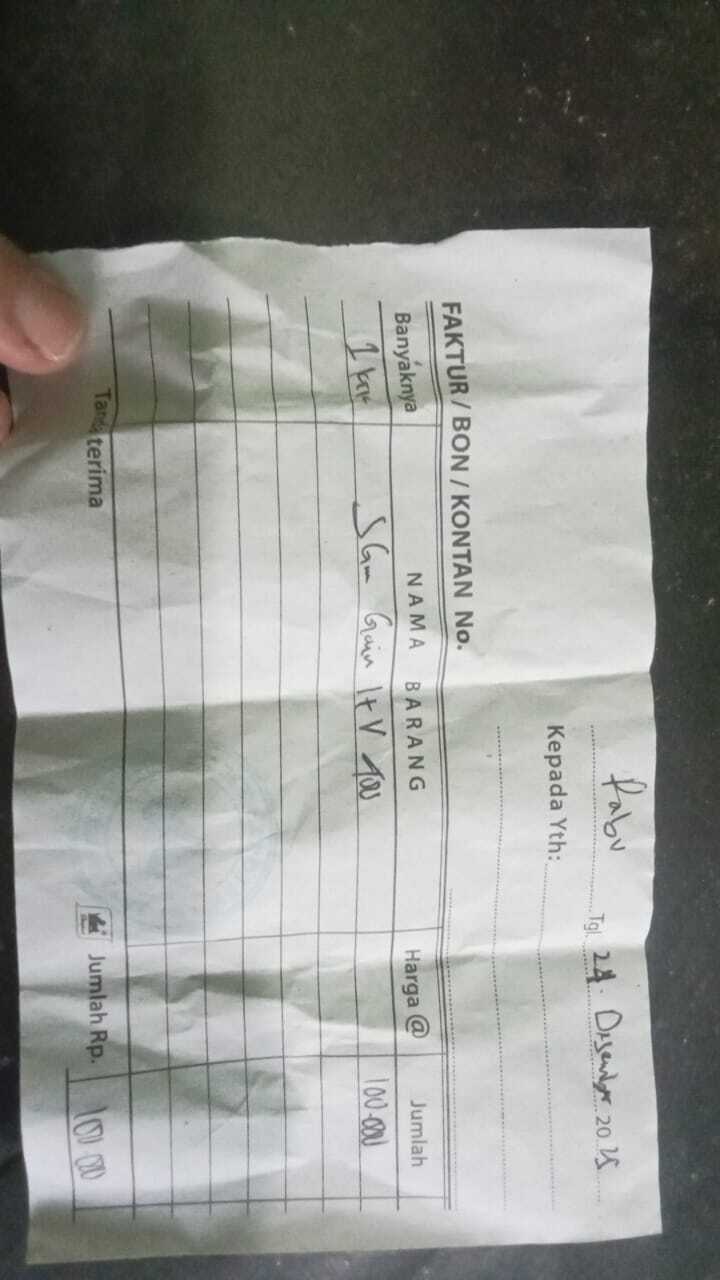 Rabu Tgl. 24. Desember 2025
Kepada Yth:
FAKTUR / BON / KONTAN No.
Banyaknya NAMA BARANG Harga @ Jumlah
1 SGM Gain 1+ V 400 100.000
Tanda terima Jumlah Rp. 100.000